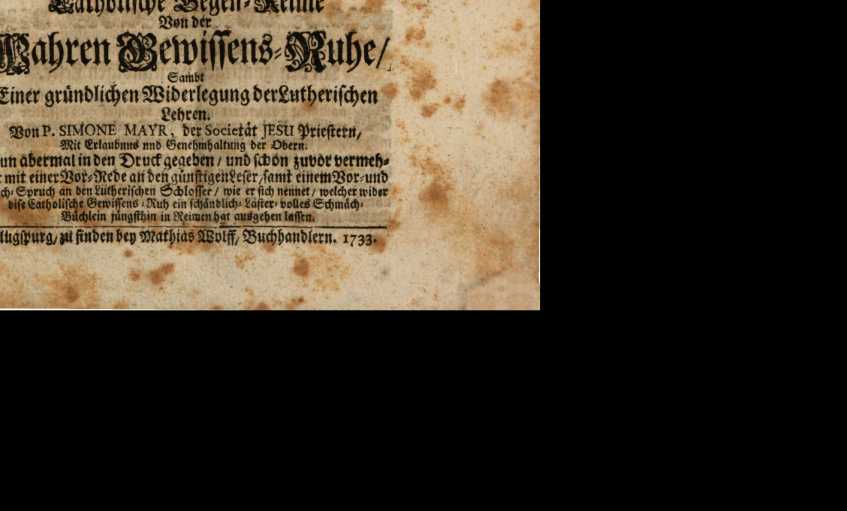 Catholische Gegen-Reime
Von der
Wahren Gewissens-Ruhe/
Sambt
Einer gründlichen Widerlegung der Lutherischen
Lehren.
Von P. SIMONE MAYR, der Societät JESU Priestern,
Mit Erlaubnus und Genehmhaltung der Obern.
un abermal in den Druck gegeben / und schon zuvor vermeh-
mit einer Vor-Rede an den günstigen Leser / samt einem Vor- und
ch-Spruch an den Lutherischen Schlosser / wie er sich nennet / welcher wider
dise Catholische Gewissens-Ruh ein schändlich-Laster-volles Schmäch-
Büchlein jüngsthin in Reimen hat ausgehen lassen.
ugspurg, zu finden bey Mathias Wolff, Buchhandlern. 1733.